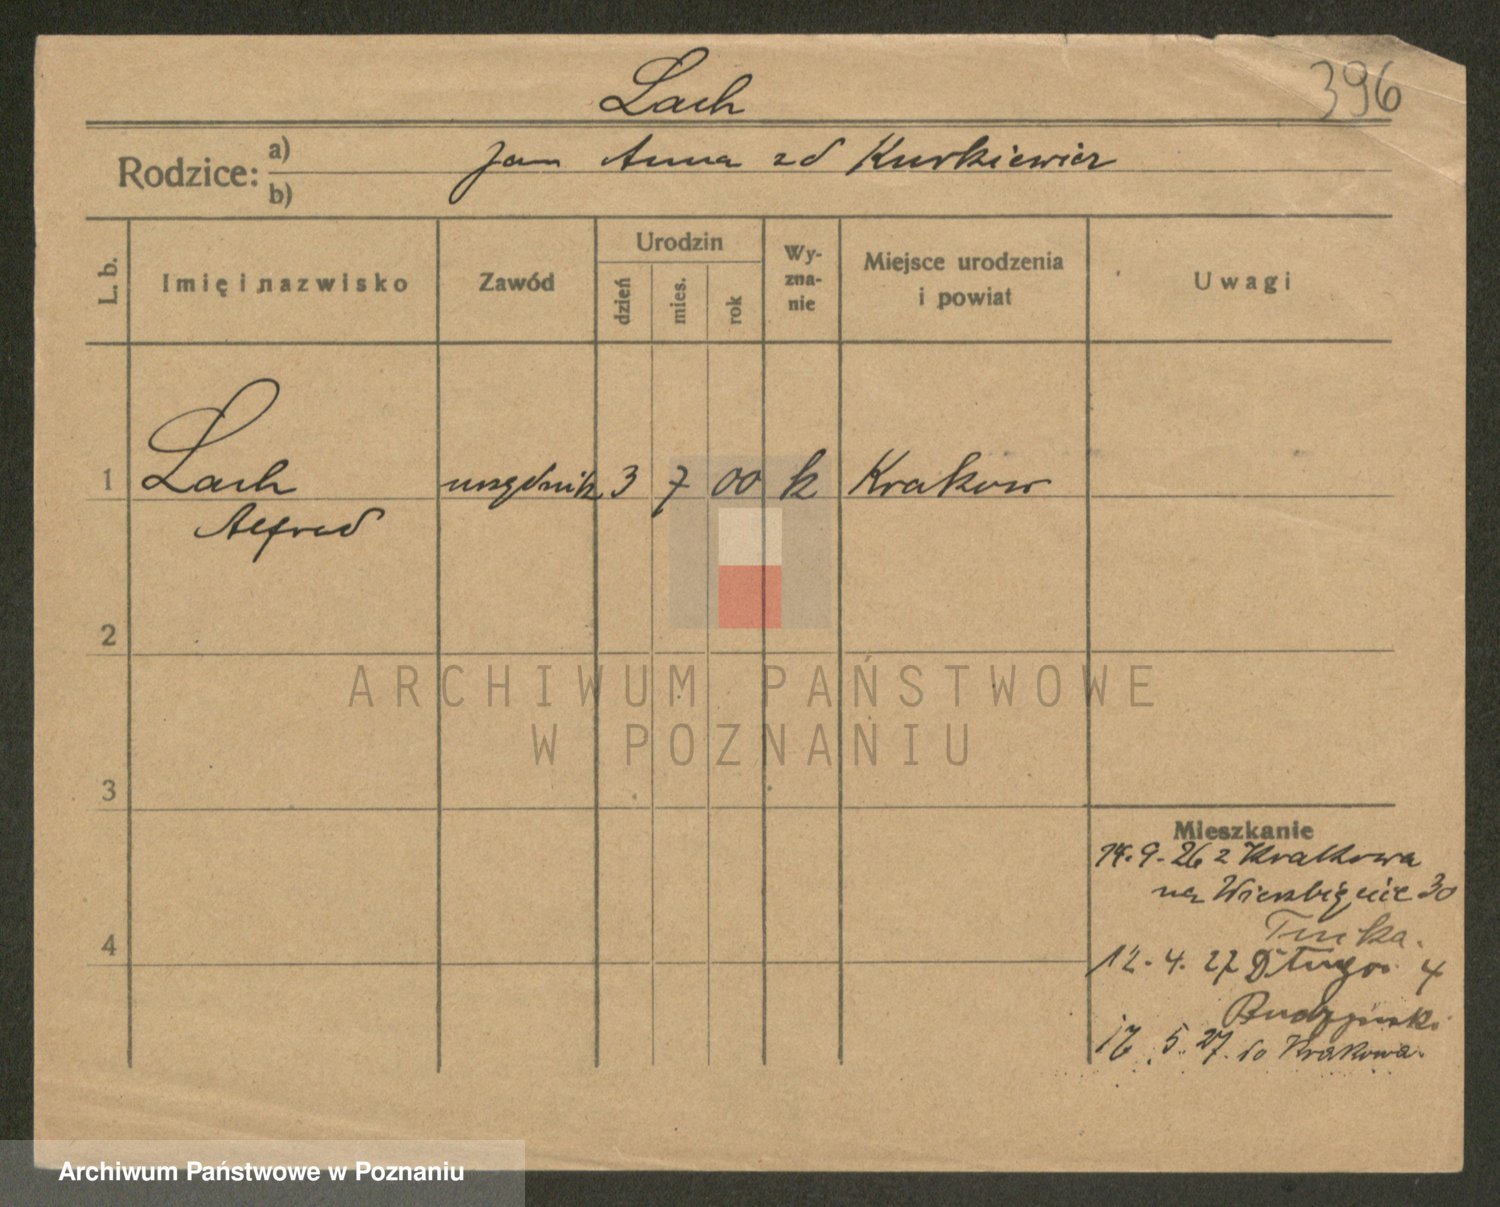 Lach
396
Rodzice: a) Jan Anna zd Kurkiewicz
b)
L. b.
Imię i nazwisko
Zawód
Urodzin
dzień
mies.
rok
Wy-
zna-
nie
Miejsce urodzenia
i powiat
Uwagi
1 Lach urzędnik 3 7 00 k Krakow
Alfred
2
ARCHIWUM PAŃSTWOWE
W POZNANIU
3
Mieszkanie
14.9.26 z Krakowa
na Wierzbięcice 30
4
12.4.27 Długa 4
Budzyński
17.5.27. do Krakowa.
Archiwum Państwowe w Poznaniu